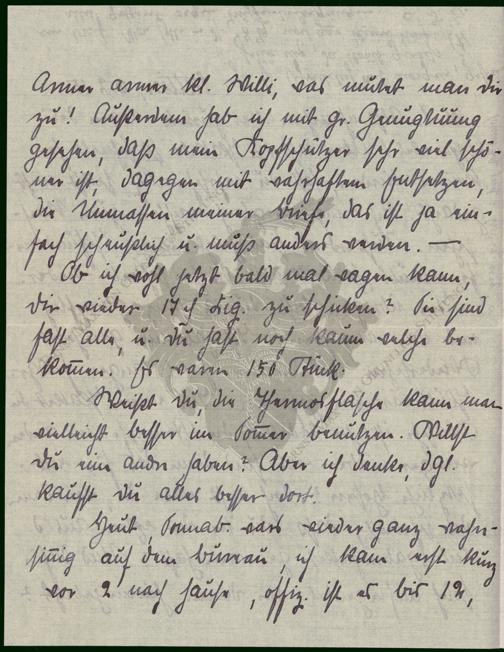 Armer armer kl. Willi, was mutet man dir
zu! Außerdem hab ich mit gr. Genugtuung
gesehen, daß mein Kopfschützer sehr viel schö-
ner ist, dagegen mit wahrhaftem Entsetzen,
die Unmassen meiner Briefe, das ist ja ein-
fach scheußlich u. muß anders werden. —
Ob ich wohl jetzt bald mal wagen kann,
dir wieder 17 ch Zig. zu schicken? Sie sind
fast alle, u. du hast noch kaum welche be-
kommen. Es waren 150 Stück.
Weißt du, die Thermosflasche kann man
vielleicht besser im Sommer benutzen. Willst
du eine andre haben? Aber ich denke, dgl.
kaufst du alles besser dort.
Heut Sonnab. wars wieder ganz wahn-
sinnig auf dem bureau, ich kam erst kurz
vor 2 nach hause, offiz. ist es bis 12,